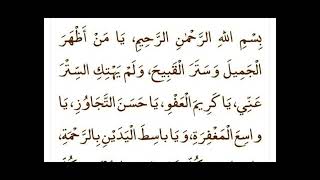 بِسْمِ اللهِ الرَّحْمٰنِ الرَّحِيمِ، يَا مَنْ أَظْهَرَ
الْجَمِيلَ وَسَتَرَ الْقَبِيحَ، وَلَمْ يَهْتِكِ السِّتْرَ
عَنِّي، يَا كَرِيمَ الْعَفْوِ، يَا حَسَنَ التَّجَاوُزِ، يَا
وَاسِعَ الْمَغْفِرَةِ، وَيَا بَاسِطَ الْيَدَيْنِ بِالرَّحْمَةِ،